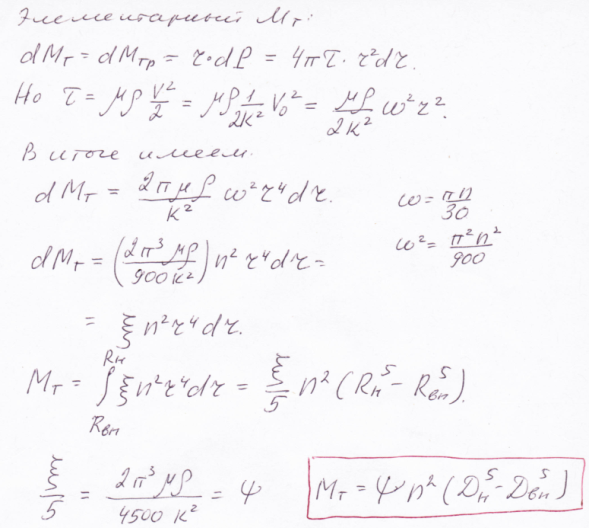 Элементарный Mт:
dMт = dMтр = r·dP = 4πτ·r²dr.
Но τ = μρ V²/2 = μρ 1/2k² V₀² = μρ/2k² ω²r².
В итоге имеем.
dMт = 2πμρ/k² ω²r⁴dr. ω = πn/30
dMт = (2π³μρ/900k²) n²r⁴dr = ω² = π²n²/900
= ξ n²r⁴dr.
Mт = ∫ Rвн Rн ξn²r⁴dr = ξ/5 n² (Rн⁵ - Rвн⁵).
ξ/5 = 2π³μρ/4500 k² = ψ Mт = ψn² (Dн⁵ - Dвн⁵)